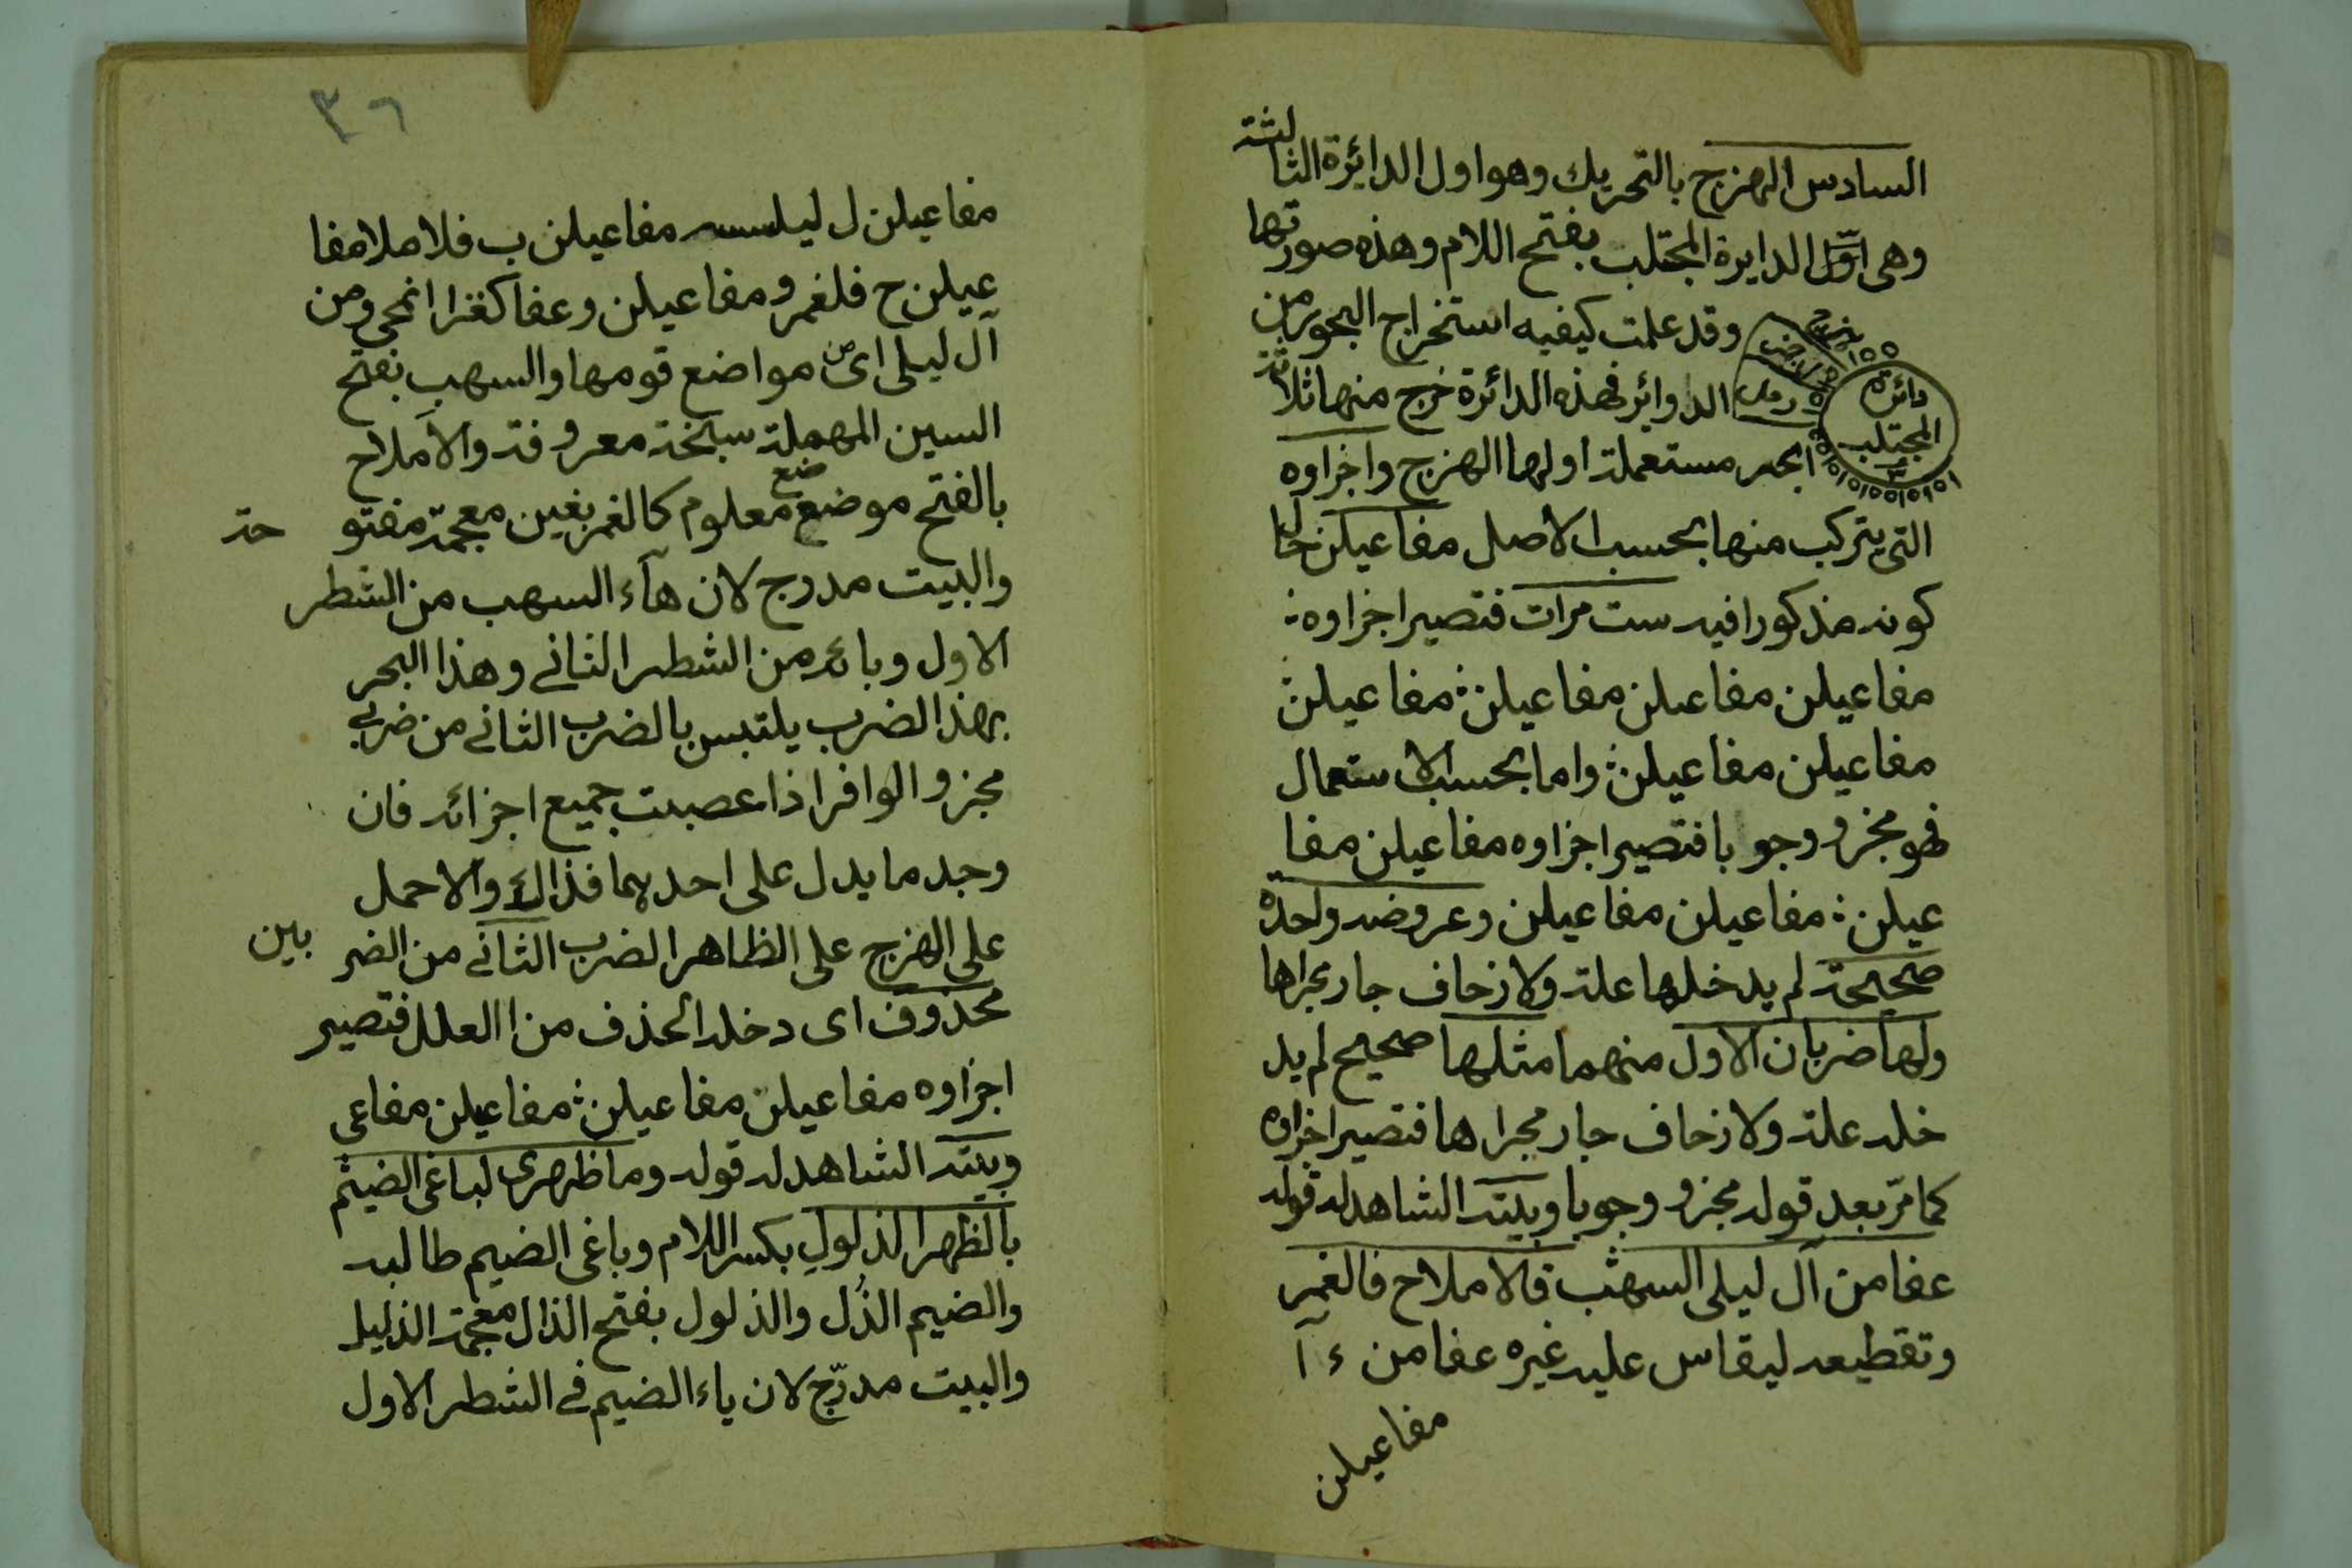 السادس الهزج بالتحريك وهو اول الدائرة الثالثة
وهى اوّل الدايرة المجتلب بفتح اللام وهذه صورتها
وقد علمت كيفيه استخراج البحور من
الدوائر فهذه الدائرة خرج منها ثلاثة
ابحر مستعملة اولها الهزج واجزاوه
دائرة
المجتلب
٣
هزج
رجز
رمل
التى يتركب منها بحسب الاصل مفاعيلن حال
كونه مذكورا فيه ست مرات فتصير اجزاوه
مفاعيلن مفاعيلن مفاعيلن مفاعيلن
مفاعيلن مفاعيلن واما بحسب الاستعمال
فهو مجزو وجوبا فتصير اجزاوه مفاعيلن مفا
عيلن مفاعيلن مفاعيلن وعروضه واحدة
صحيحة لم يدخلها علة ولا زحاف جار مجراها
ولها ضربان الاول منهما مثلها صحيح لم يد
خله علة ولا زحاف جار مجراها فتصير اجزاوه
كما مرّ بعد قوله مجزو وجوبا وبيته الشاهد له قوله
عفا من آل ليلى السهب فالاملاح فالغمر
وتقطيعه ليقاس عليه غيره عفا من ء ا
مفاعيلن
٣٦
مفاعيلن ل ليلسسه مفاعيلن ب فلا ملا مفا
عيلن ح فلغمرو مفاعيلن وعفا كغزا انمحى ومن
آل ليلى اى من مواضع قومها والسهب بفتح
السين المهملة سبخة معروفة والاملاح
بالفتح موضع معلوم كالغمر بغين معجمة مفتوحة
والبيت مدرج لان هآء السهب من الشطر
الاول وبائه من الشطر الثانى وهذا البحر
بهذا الضرب يلتبس بالضرب الثانى من ضربى
مجزو الوافر اذا عصبت جميع اجزائه فان
وجد ما يدل على احدهما فذاك والا حمل
على الهزج على الظاهر الضرب الثانى من الضربين
محذوف اى دخله الحذف من العلل فتصير
اجزاوه مفاعيلن مفاعيلن مفاعيلن مفاعى
وبيته الشاهد له قوله وما ظهرى لباغى الضيم
بالظهر الذلول بكسر اللام وباغى الضيم طالبه
والضيم الذُل والذلول بفتح الذال معجمة الذليل
والبيت مدرّج لان ياء الضيم فى الشطر الاول